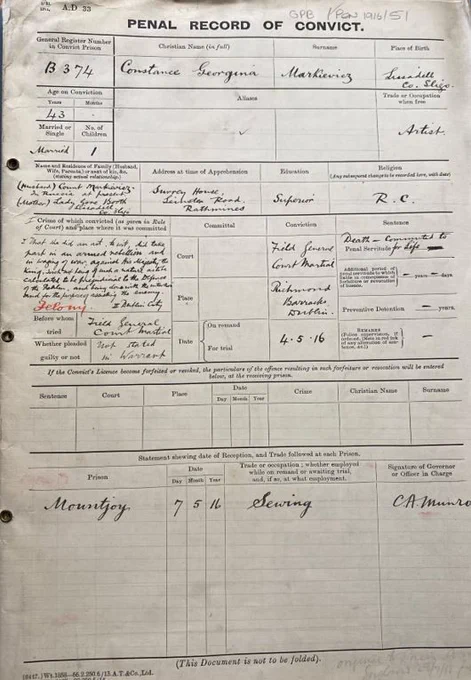 A.D 33
GPB / PEN 1916/51
PENAL RECORD OF CONVICT.
General Register Number in Convict Prison
Christian Name (in full)
Surname
Place of Birth
B 374
Constance Georgina
Markievicz
Lissadell
Co. Sligo
Age on Conviction
Years
Months
Aliases
Trade or Occupation when free
43
Artist.
Married or Single
No. of Children
Married
1
Name and Residence of Family (Husband, Wife, Parents,) or next of kin, &c.
Address at time of Apprehension
Education
Religion
(Any subsequent changes to be recorded here, with date)
(Husband) Count Markievicz
In Russia at present
(Mother) Lady Gore Booth
Lissadell
Co. Sligo
Surrey House,
Leinster Road,
Rathmines
Superior
R. C.
Crimes of which convicted (as given in Rule of Court) and place where it was committed
Committal
Conviction
Sentence
I That he did an act to wit, did take
part in an armed rebellion and
in waging of war against His Majesty the
King, such act being of such a nature as to be
calculated to be prejudicial to the Defence
of the Realm, and being done with the intention
and for the purpose of assisting the enemy.
Felony
Dublin City
Court
Field General
Court Martial
Death – Commuted to
Penal Servitude for life
Place
Richmond
Barracks
Dublin.
years
days
Preventive Detention
years
Before whom tried
Field General
Court Martial
Whether pleaded guilty or not
Not stated
in Warrant
Date
On remand
For trial
4.5.16
REMARKS
If the Convict's Licence become forfeited or revoked, the particulars of the offence resulting in such forfeiture or revocation will be entered
below, at the receiving prison.
Sentence
Court
Place
Date
Day
Month
Year
Crime
Christian Name
Surname
Statement shewing date of Reception, and Trade followed at each Prison.
Prison
Date
Day
Month
Year
Trade or occupation; whether employed
while on remand or awaiting trial,
and, if so, at what employment.
Signature of Governor
or Officer in Charge
Mountjoy
7 5 16
Sewing
C.A. Munro
(This Document is not to be folded.)
A.T.&Co., Ltd.